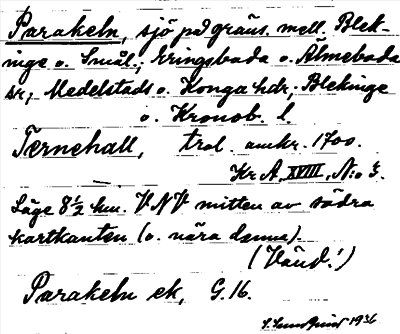 Parakeln, sjö på gräns. mell. Blek-
inge o. Smål., Eringsboda o. Älmeboda
sr, Medelstads o. Konga hdr, Blekinge
o. Kronob. l.
Tärnehall, trol. omkr. 1700.
Kr A, XVIII, N:o 3.
Läge 8½ km. VNV mitten av södra
kartkanten (o. nära denna).
(Vänd!)
Parakeln ek, G. 16.
1936